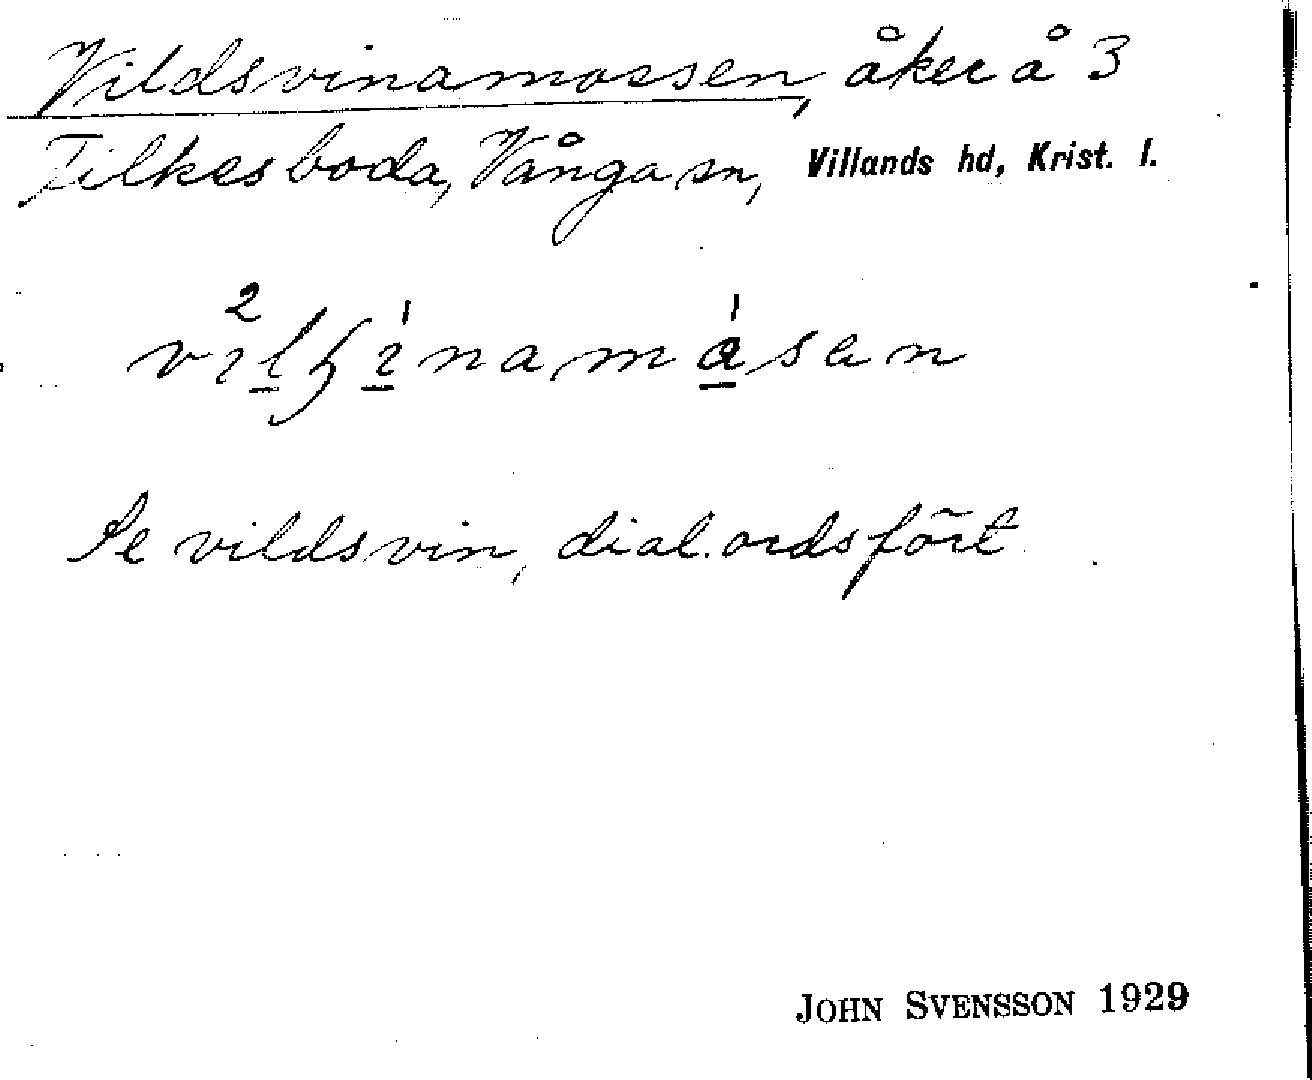 Vildsvinamossen, åker å 3
Filkesboda, Vånga sn, Villands hd, Krist. l.
Se vildsvin, dial. ordsfört
JOHN SVENSSON 1929